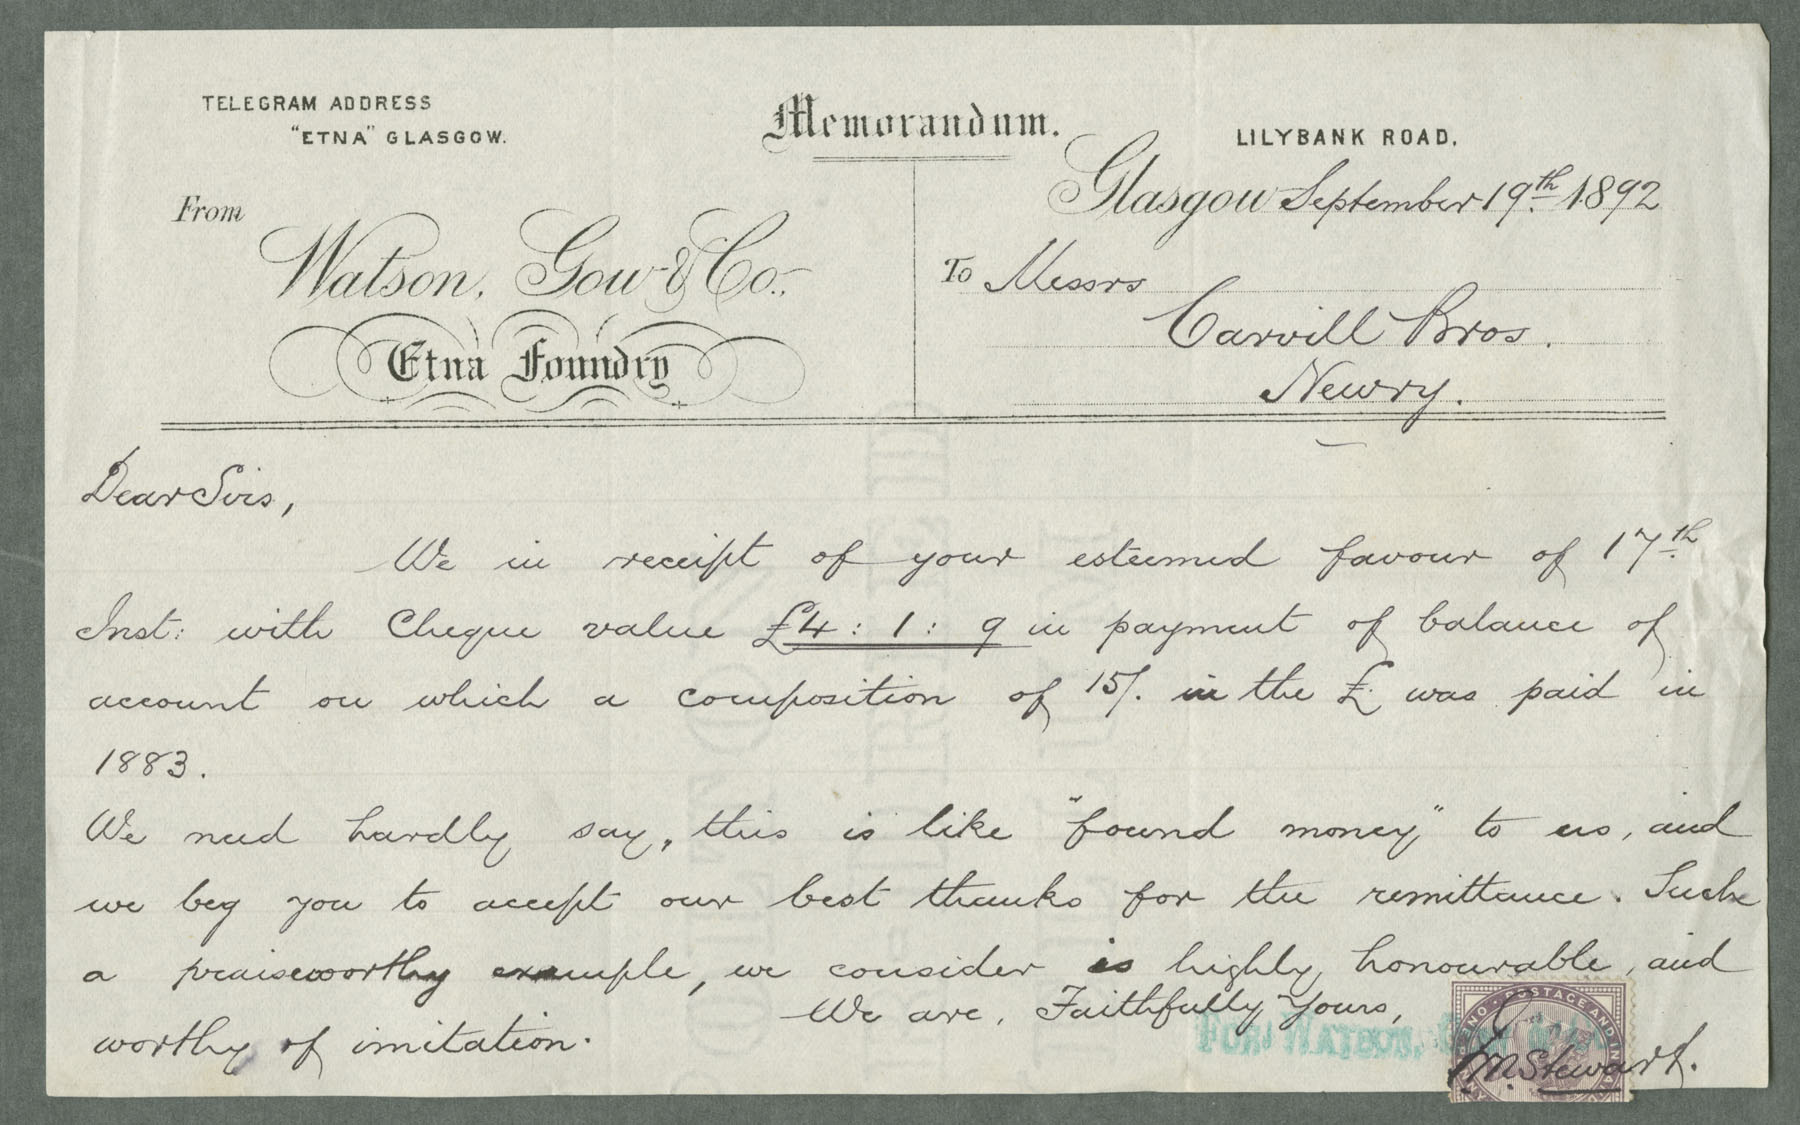 TELEGRAM ADDRESS
"ETNA" GLASGOW.
Memorandum.
LILYBANK ROAD,
Glasgow September 19th. 1892
From
Watson, Gow & Co.,
Etna Foundry
To Messrs
Carvill Bros.
Newry.
Dear Sirs,
We in receipt of your esteemed favour of 17th.
Inst: with Cheque value £4 : 1 : 9 in payment of balance of
account on which a composition of 15/. in the £ was paid in
1883.
We need hardly say, this is like "found money" to us, and
we beg you to accept our best thanks for the remittance. Such
a praiseworthy example, we consider is highly honourable, and
worthy of imitation.
We are, Faithfully Yours,
FOR WATSON, GOW & CO.
POSTAGE AND IN
M. Stewart.